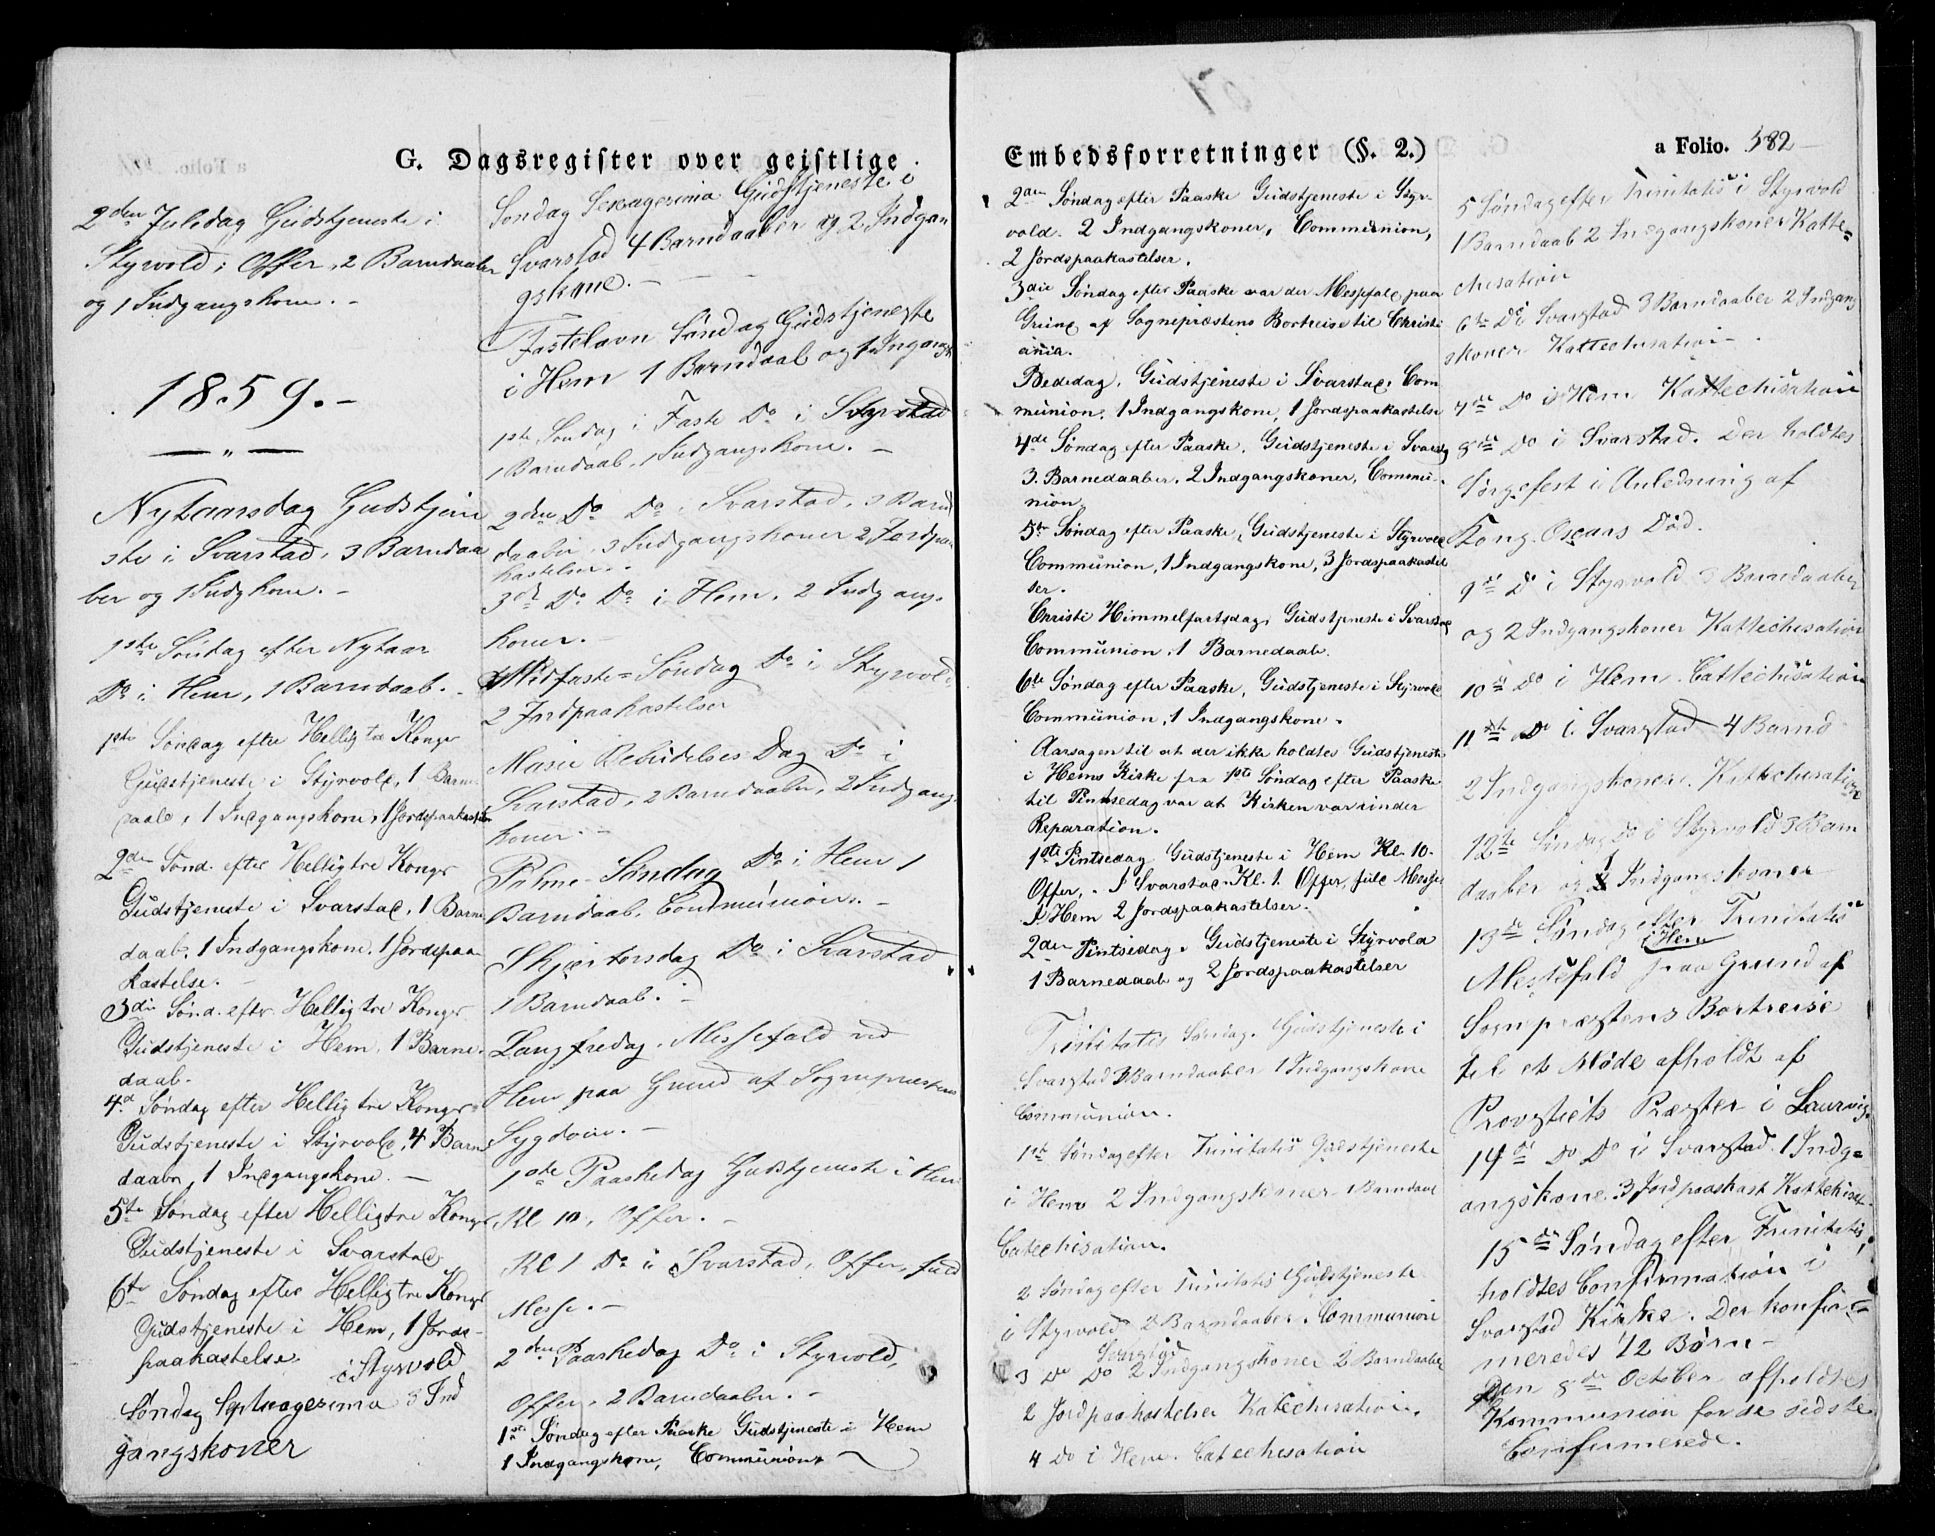 G. Dagsregister over geistlige
2den Juledag Gudstjeneste i
Styrvold; Offer, 2 Barndaaber
og 1 Indgangskone. -
1859. -
Nytaarsdag Gudstjene
ste i Svarstad, 3 Barndaa
ber og 1 Indgkone. -
1ste Søndag efter Nytaar
Do i Hem, 1 Barndaab. -
1ste Søndag efter Hellig tre Konger
Gudstjeneste i Styrvold, 1 Barne
daab, 1 Indgangskone, 1 Jordspaakastelse
2den Sønd. efter Helligtre Konger
Gudstjeneste i Svarstad, 1 Barne
daab, 1 Indgangskone, 1 Jordspaa
kastelse. -
3die Sønd. eftr. Helligtre Konger
Gudstjeneste i Hem, 1 Barne
daab.
4d Søndag efter Helligtre Konger
Gudstjeneste i Styrvold, 4 Barne
daabr, 1 Indgangskone. -
5te Søndag efter Helligtre Konger
Gudstjeneste i Svarstad
6te Søndag efter Helligtre Konger
Gudstjeneste i Hem, 1 Jords-
paakastelse.
i Styrvold
Søndag Septuagesima 3 Ind
gangskoner
Søndag Sexagesima Gudstjeneste i
Svarstad 4 Barndaaber og 2 Indgan
gskone. -
Fastelavn Søndag Gudstjeneste
i Hem 1 Barndaab og 1 Ingangsk
1ste Søndag i Faste Do i
1 Barndaab, 1 Indgangskone. -
2den Do Do i Svarstad, 3 Barn
daaber, 3 Indgangskoner 2 Jordpaa
kastelser.
3de Do Do i Hem, 2 Indgang-
koner. -
Midfaste=Søndag Do i Styrvold,
2 Jordpaakastelser
Mariæ Bebudelses Dag Do i
Svarstad, 2 Barndaaber, 2 Indgang
koner. -
Palme-Søndag Do i Hem 1
Barndaab, Communion. -
Skjærtorsdag Do i Svarstad
1 Barndaab. -
Langfredag. Messefald ved
Hem paa Grund af Sognepræstens
Sygdom. -
1ste Paaskedag Gudstjeneste i Hem
Kl 10, Offer. -
Kl 1 Do i Svarstad, Offer, fuld
Messe. -
2den Paaskedag Do i Styrvold,
Offer, 2 Barndaaber. -
1ste Søndag efter Paaske Gudstjeneste i Hem
1 Indgangskone, Communion
Embedsforretninger (§. 2.)
a Folio. 582
2den Søndag efter Paaske Gudstjeneste i Styr-
vold. 2 Indgangskoner, Communion,
2 Jordspaakastelser.
3die Søndag efter Paaske var der Messefald paa
Grund af Sognepræstens Bortreise til Christi
ania.
Bededag, Gudstjeneste i Svarstad, Com
munion, 1 Indgangskone, 1 Jordspaakastelse
4de Søndag efter Paaske, Gudstjeneste i Svarstd
3. Barnedaaber, 2 Indgangskoner, Commu-
nion
5te Søndag efter Paaske, Gudstjeneste i Styrvold
Communion, 1 Indgangskone, 3 Jordspaakastel
ser.
Christi Himmelfartsdag, Gudstjeneste i Svarstad
Communion, 1 Barnedaab.
6te Søndag efter Paaske, Gudstjeneste i Styrvold
Communion, 1 Indgangskone.
Aarsagen til at der ikke holdtes Gudstjeneste
i Hems Kirke fra 1ste Søndag efter Paaske
til Pintsedag var at Kirken var under
Reparation.
1ste Pintsedag Gudstjeneste i Hem Kl. 10.
Offer, - I Svarstad Kl. 1. Offer, fuld Messe
I Hem 2 Jordspaakastelser.
2den Pintsedag. Gudstjeneste i Styrvold
1 Barnedaab og 2 Jordspaakastelser
Trinitatis Søndag. Gudstjeneste i
Svarstad 3 Barndaaber 1 Indgangskone
Communion.
1ste Søndag efter Trinitatis Gudstjeneste
i Hem 2 Indgangskoner 1 Barndaab
Catechisation.
2 Søndag efter Trinitatis Gudstjeneste
i Styrvold 2 Barndaaber. Communion
Svarstad
3 Do Do 2 Indgangskoner 2 Barndaaber
2 Jordpaakastelser Katechisation.
4 Do i Hem. Catechisation
5 Søndag efter Trinitatis i Styrvold
1 Barndaab 2 Indgangskoner Katte=
chisation
6te Do i Svarstad 3 Barndaaber 2 Indgang
skoner Kattechisation
7de Do i Hem Kattechisation
8de Do i Svarstad. Der holdtes
Sørgefest i Anledning af
Kong Oscars Død.
9de Do i Styrvold 3 Barndaaber
og 2 Indgangskoner Kattechisation
10de Do i Hem. Cattechisation
11te Do i Svarstad 4 Barnd
2 Indgangskoner. Kattechisation
12te Søndag Do i Styrvold 3 Barn
daaber og 1 Indgangskoner
13de Søndag efter Trinitatis
i Hem
Messefald paa Grund af
Sognepræstens Bortreise
til et Møde afholdt af
Provstiets Præster i Laurvig
14de Do Do i Svarstad. 1 Indg=
angskone. 3 Jordpaakast Kattekisat.
15de Søndag efter Trinitatis,
holdtes Confirmation i
Svarstad Kirke. Der konfir=
meredes 12 Børn -
Den 8de October afholdtes
Kommunion for de sidste
Confirmerede.